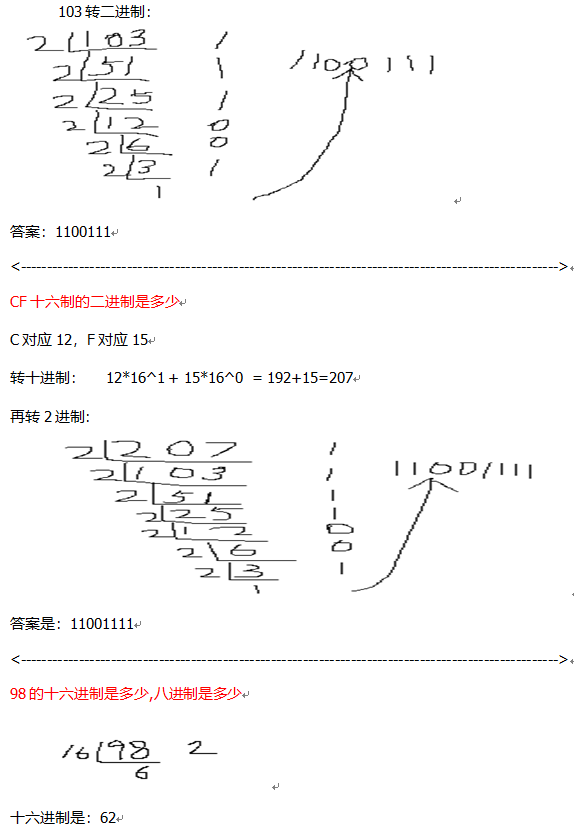 103 转二进制：
2 103 1
2 51 1 1100111
2 25 1
2 12 0
2 6 0
2 3 1
1
答案：1100111
<----------------------------------------------------------------------------------------------------------->
CF 十六制的二进制是多少
C 对应 12，F 对应 15
转十进制： 12*16^1 + 15*16^0 = 192+15=207
再转 2 进制：
2 207 1
2 103 1 11001111
2 51 1
2 25 1
2 12 0
2 6 0
2 3 1
1
答案是：11001111
<----------------------------------------------------------------------------------------------------------->
98 的十六进制是多少,八进制是多少
16 98 2
6
十六进制是：62